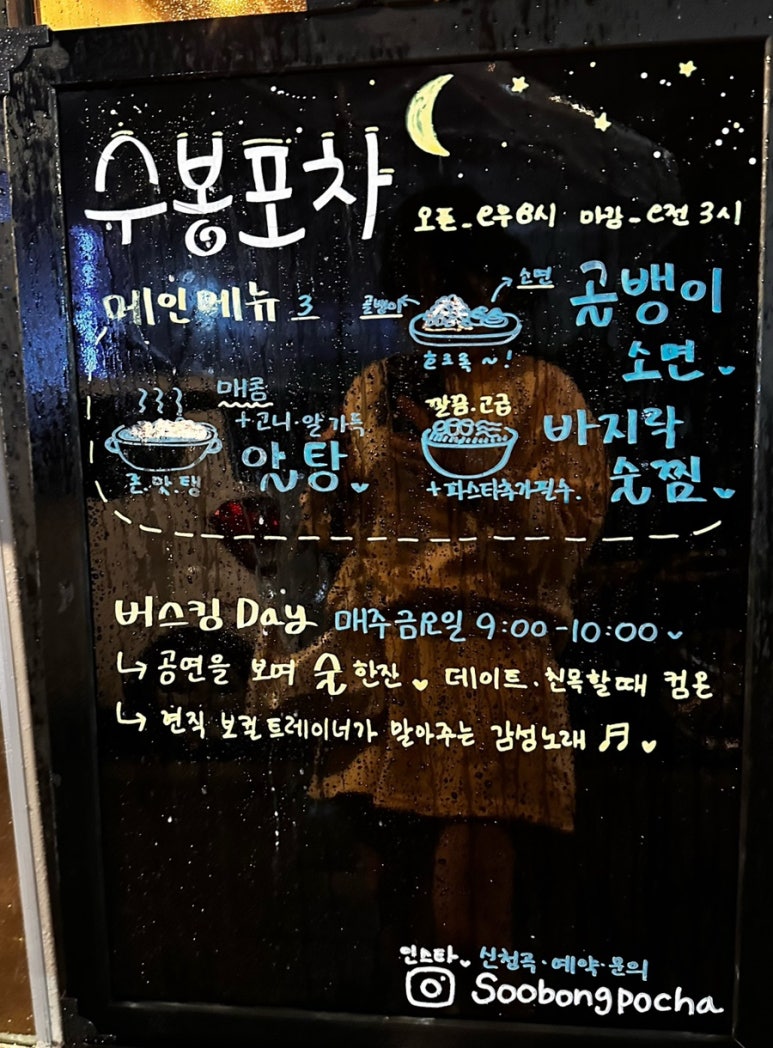 수봉포차
오픈_오후6시 마감_오전 3시
메인메뉴 3
골뱅이
소면
호로록~!
골뱅이
소면
매콤
+고니·알 가득
알탕
존.맛.탱
깔끔.고급
바지락
술찜
+파스타추가필수.
버스킹 Day 매주 금요일 9:00-10:00
공연을 보며 술 한잔 데이트.친목할때 컴온
현직 보컬트레이너가 말아주는 감성노래
인스타 신청곡·예약·문의
Soobongpocha